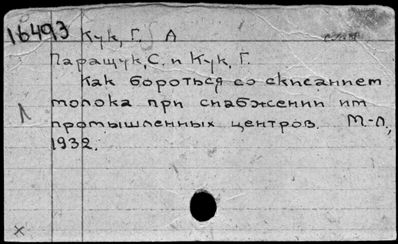 16493 Кук, Г. А
Паращук, С. и Кук, Г.
Как бороться со скисанием
молока при снабжении им
промышленных центров. М-Л,
1932.
Л
×